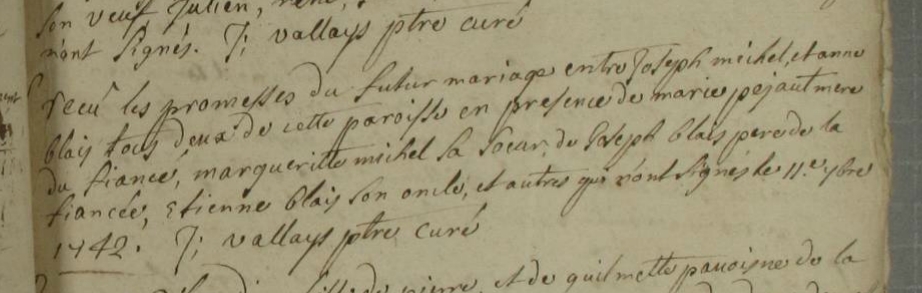 son veuf Julien, rené,
n'ont signés. J; vallays ptre curé
receu les promesses du futur mariage entre Joseph michel, et anne
blais tous deux de cette paroisse en presence de marie pajaut mere
du fiancé, margueritte michel sa soeur, de Joseph blais pere de la
fiancée, Etienne blais son oncle, et autres qui n'ont signés le 11.e 7bre
1742. J; vallays ptre curé
de pierre, et de guilmette panoisne de la